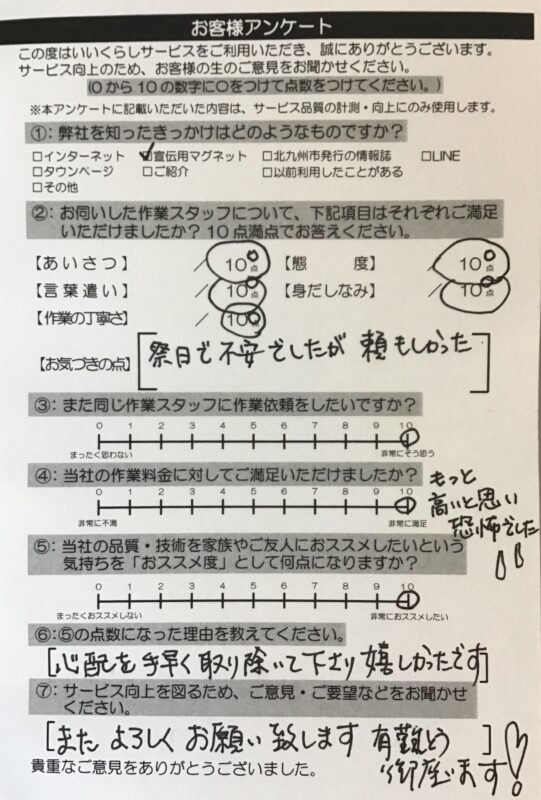 お客様アンケート
この度はいいくらしサービスをご利用いただき、誠にありがとうございます。
サービス向上のため、お客様の生のご意見をお聞かせください。
(0から10の数字に○をつけて点数をつけてください。)
※本アンケートに記載いただいた内容は、サービス品質の計測・向上にのみ使用します。
①:弊社を知ったきっかけはどのようなものですか?
□インターネット ☑宣伝用マグネット □北九州市発行の情報誌 □LINE
□タウンページ □ご紹介 □以前利用したことがある
□その他
②:お伺いした作業スタッフについて、下記項目はそれぞれご満足
いただけましたか?10点満点でお答えください。
【あいさつ】 / 10点 【態度】 / 10点
【言葉遣い】 / 10点 【身だしなみ】 / 10点
【作業の丁寧さ】 / 10点
【お気づきの点】 祭日で不安でしたが 頼もしかった
③:また同じ作業スタッフに作業依頼をしたいですか?
0 1 2 3 4 5 6 7 8 9 10
まったく思わない 非常にそう思う
④:当社の作業料金に対してご満足いただけましたか?
0 1 2 3 4 5 6 7 8 9 10
非常に不満 非常に満足
もっと
高いと思い
恐怖でした
⑤:当社の品質・技術を家族やご友人におススメしたいという
気持ちを「おススメ度」として何点になりますか?
0 1 2 3 4 5 6 7 8 9 10
まったくおススメしない 非常におススメしたい
⑥:⑤の点数になった理由を教えてください。
[心配を手早く取り除いて下さり嬉しかったです]
⑦:サービス向上を図るため、ご意見・ご要望などをお聞かせ
ください。
[また よろしく お願い致します 有難とう]
御座います!
貴重なご意見をありがとうございました。